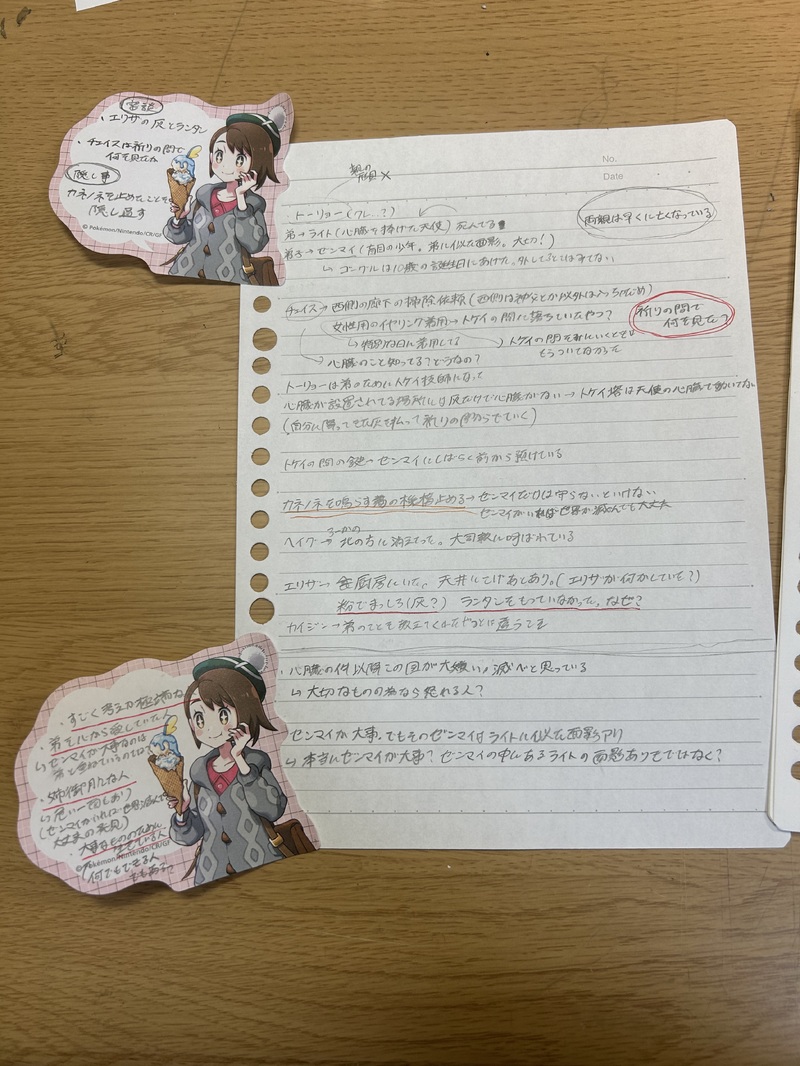 容疑
・エリサの灰とランタン
・チェイスは祈りの間で
何を見たか
隠し事
カネノネを止めたことを
隠し通す
© Pokémon/Nintendo/CR/GF
No.
Date
両親は早くに亡くなっている
トーリョー(クレ…?)
弟→ライト(心臓を捧げた天使) 死んでる
弟子→ゼンマイ(盲目の少年。弟に似た面影。大切!)
↳ ゴーグルは10歳の誕生日にあげた。外したとこはみてない
チェイス→西側の廊下の掃除依頼(西側は神父とか以外は入っちゃだめ)
女性用のイヤリング着用→トケイの間に落ちていたやつ?
↳特別な日に着用してる
トケイの間を出ていくとき
もうついてなかった
祈りの間で
何を見た?
心臓のこと知ってる?どうなの?
トーリョーは弟のためにトケイ技師になった
心臓が設置されてる場所には灰だけで心臓がない→トケイ塔は天使の心臓で動いてない
(自分に降ってきた灰を払って祈りの間からでていく)
トケイの間の鍵→ゼンマイにしばらく前から預けている
カネノネを鳴らす為の機構止める→ゼンマイだけは守らないといけない
ゼンマイがいれば世界が滅んでも大丈夫
ヘイグ→北の方に消えてった。大司教に呼ばれている
エリサ→食厨房にいた。天井にこげあとあり。(エリサが付かしていた?)
粉でまっしろ(灰?) ランタンをもっていなかった。なぜ?
カイジン→弟のことも教えてくれたがうとは違うこえ
・心臓の件以降この国が大嫌い!滅べと思っている
↳ 大切なものの為なら死れる人?
ゼンマイが大事。でもそのゼンマイはライトに似た面影アリ
↳ 本当にゼンマイが大事? ゼンマイの中にあるライトの面影ありきではなく?
・すごく考えが極端な人
・弟を心から愛していた人
↳ ゼンマイが大事なのは
弟と重ねているのでは?
・姉御肌な人
↳ 危い一面もあり
(ゼンマイがいれば世界滅んでも
大丈夫の発見)
・大事なもののために
生きている人
(何でもできる人
でもある?
© Pokémon/Nintendo/CR/GF